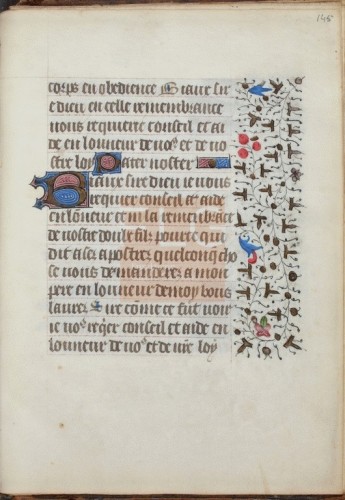 145
corps en obedience Biaux sir
e dieu en celle remembrance
nous requierre conseil et ai
de en lonneur de no⁹ et de no
stre loy Pater noster
Biaux sire dieu ie nous
requier conseil et aide
en lonneur et en la remembrāce
de nostre doulz filz pour ce qui
dit a ses apostres quelconq̄ cho
se nous demanderez a mon
pere en lonneur de moy vous
laurez Sire cōme ce fut voir
ie no⁹ reqier conseil et aide en
lonneur de no⁹ et de nr̄e loy